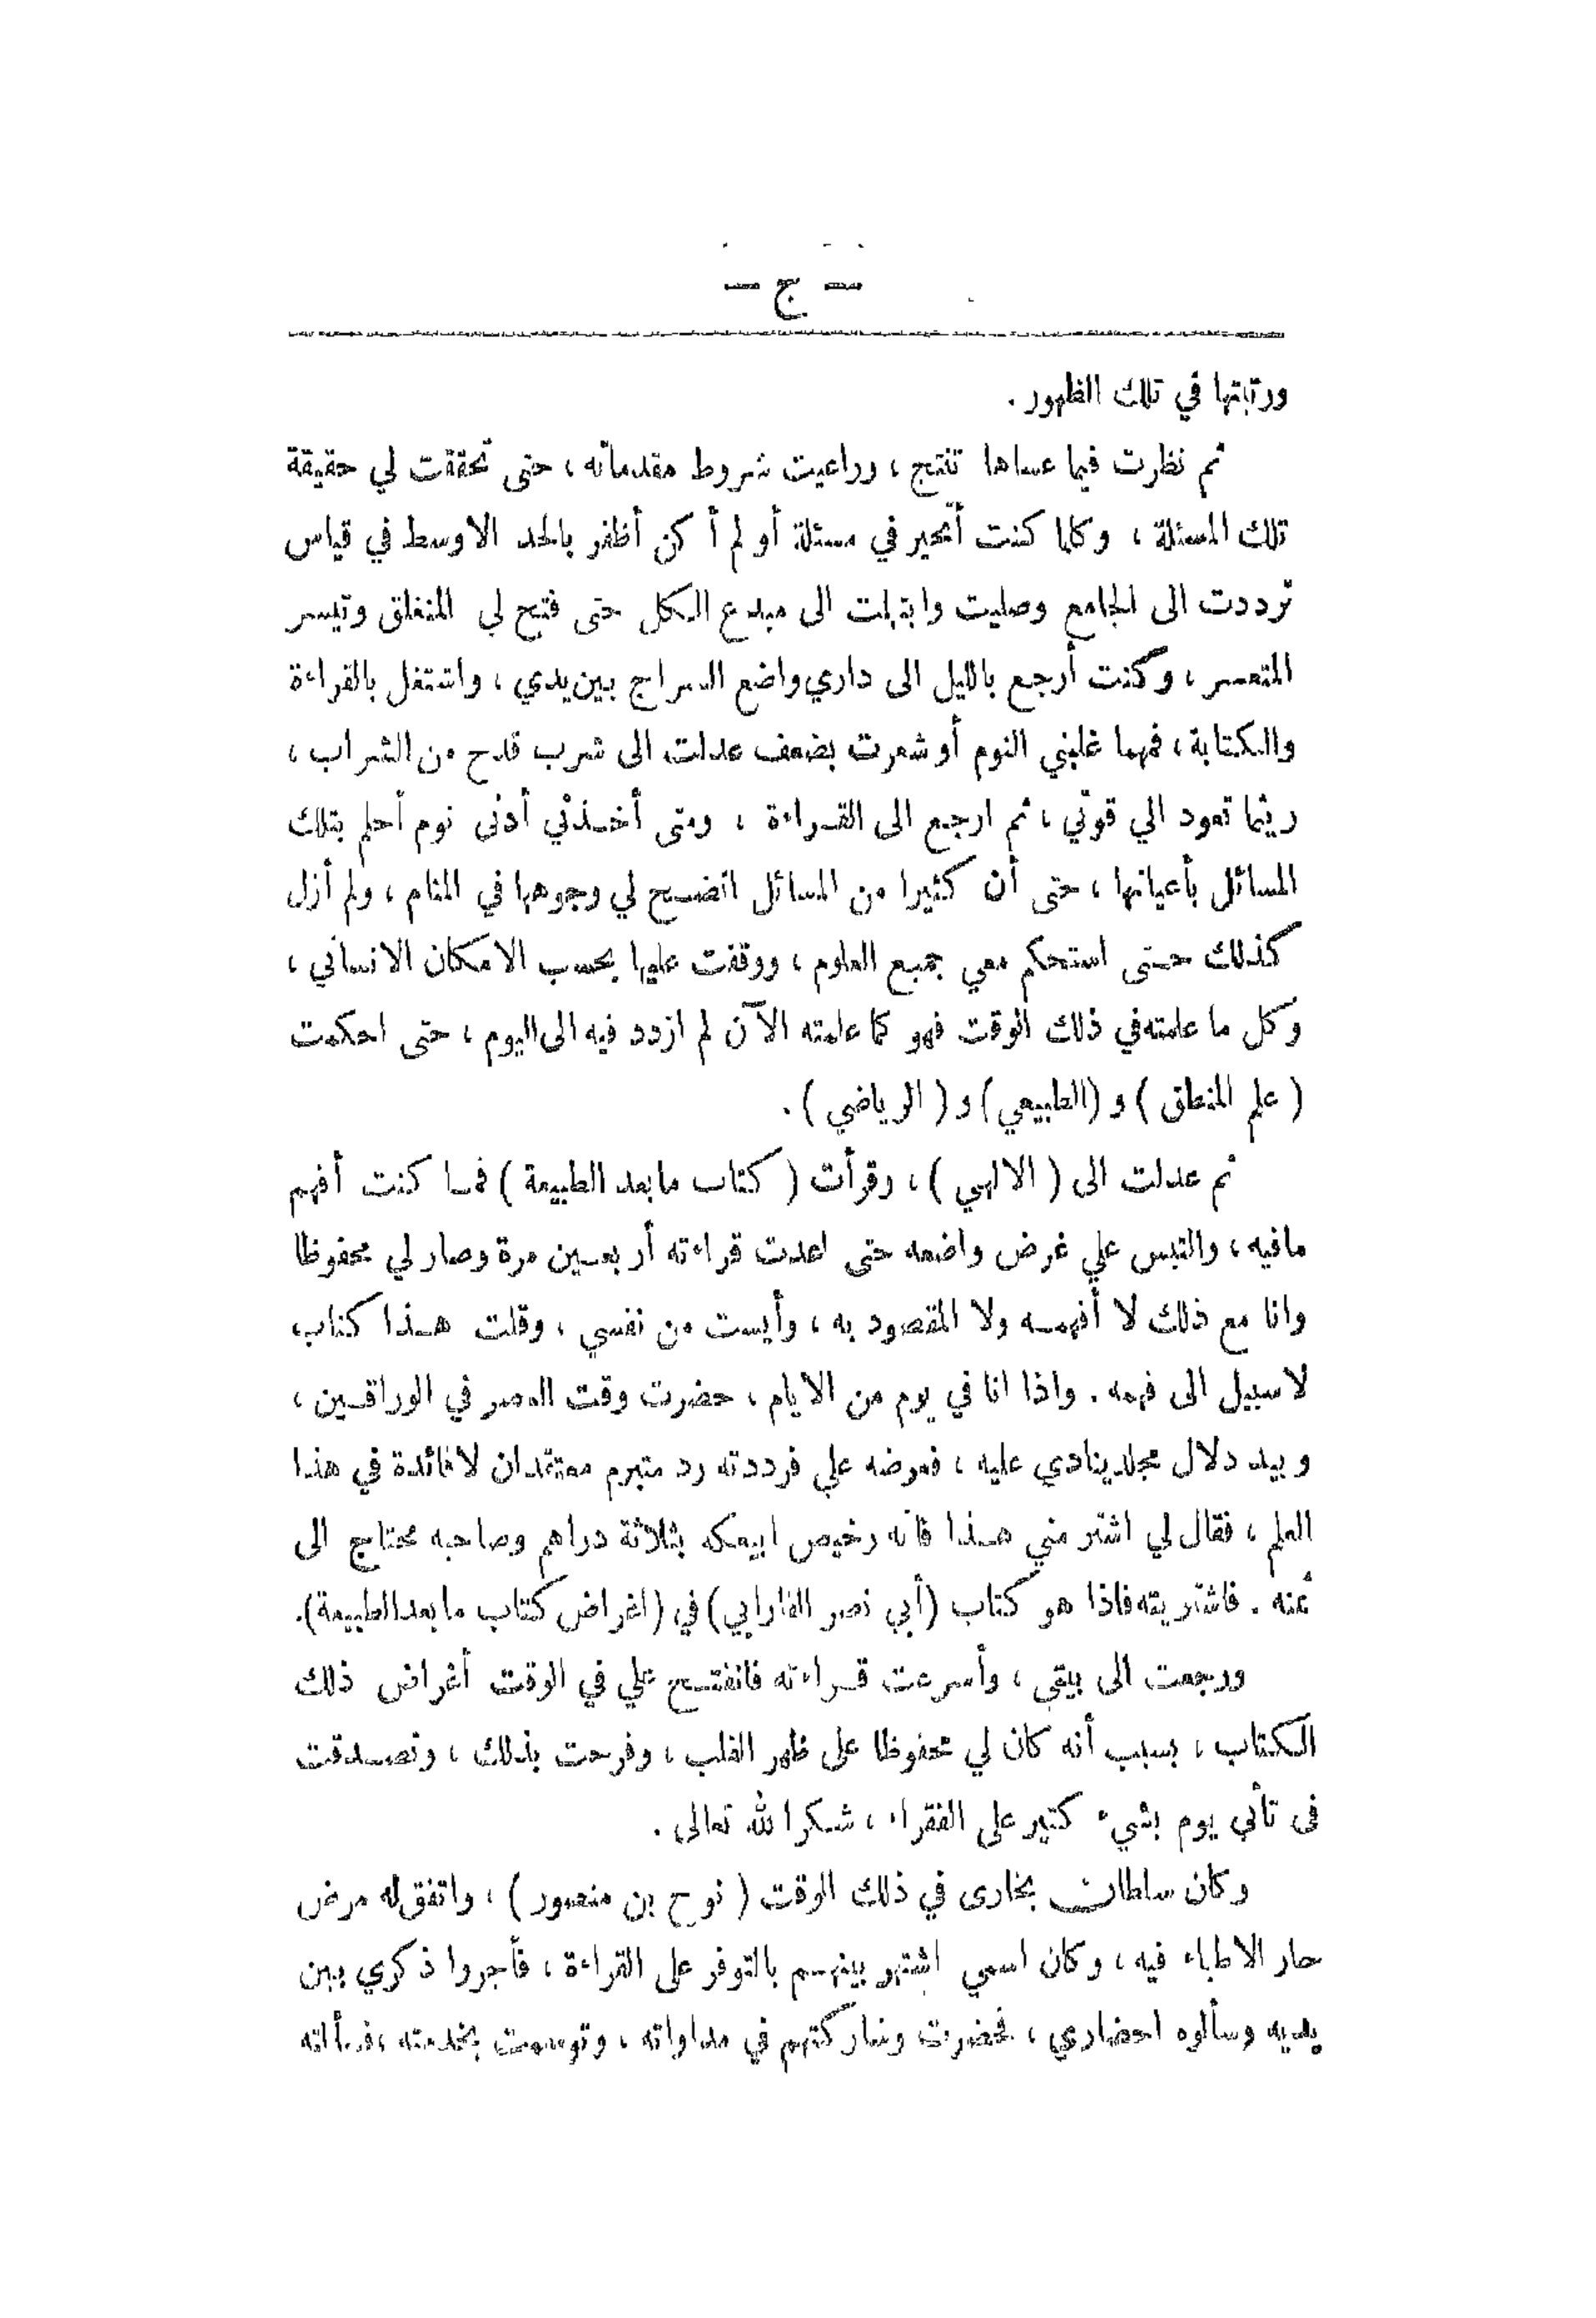 — ج —
ورتبتها في تلك الظهور .
ثم نظرت فيما عساها تنتج ، وراعيت شروط مقدماته ، حتى تحققت لي حقيقة
تلك المسئلة ، وكلما كنت أتحير في مسئلة أو لم أكن أظفر بالحد الاوسط في قياس
ترددت الى الجامع وصليت وابتهلت الى مبدع الكل حتى فتح لي المنغلق وتيسر
المتعسر ، وكنت أرجع بالليل الى داري واضع السراج بين يدي ، واشتغل بالقراءة
والكتابة ، فمهما غلبني النوم أو شعرت بضعف عدلت الى شرب قدح من الشراب ،
ريثما تعود الي قوتي ، ثم ارجع الى القراءة ، ومتى أخذني أدنى نوم أحلم بتلك
المسائل بأعيانها ، حتى أن كثيرا من المسائل اتضح لي وجوهها في المنام ، ولم أزل
كذلك حتى استحكم معي جميع العلوم ، ووقفت عليها بحسب الامكان الانساني ،
وكل ما علمته في ذلك الوقت فهو كما علمته الآن لم ازدد فيه الى اليوم ، حتى احكمت
( علم المنطق ) و ( الطبيعي ) و ( الرياضي ) .
ثم عدلت الى ( الالهي ) ، وقرأت ( كتاب ما بعد الطبيعة ) فما كنت أفهم
مافيه ، والتبس علي غرض واضعه حتى اعدت قراءته أربعين مرة وصار لي محفوظا
وانا مع ذلك لا أفهمه ولا المقصود به ، وأيست من نفسي ، وقلت هذا كتاب
لا سبيل الى فهمه . واذا انا في يوم من الايام ، حضرت وقت العصر في الوراقين ،
وبيد دلال مجلد ينادي عليه ، فعرضه علي فرددته رد متبرم معتقد ان لا فائدة في هذا
العلم ، فقال لي اشتر مني هذا فانه رخيص ابيعكه بثلاثة دراهم وصاحبه محتاج الى
ثمنه . فاشتريته فاذا هو كتاب ( أبي نصر الفارابي ) في ( اغراض كتاب ما بعد الطبيعة ) .
ورجعت الى بيتي ، وأسرعت قراءته فانفتح علي في الوقت أغراض ذلك
الكتاب ، بسبب أنه كان لي محفوظا على ظهر القلب ، وفرحت بذلك ، وتصدقت
في ثاني يوم بشيء كثير على الفقراء ، شكرا لله تعالى .
وكان سلطان بخارى في ذلك الوقت ( نوح بن منصور ) ، واتفق له مرض
حار الاطباء فيه ، وكان اسمي اشتهر بينهم بالتوفر على القراءة ، فأجروا ذكري بين
يديه وسألوه احضاري ، فحضرت وشاركتهم في مداواته ، وتوسمت بخدمته ، فسألته